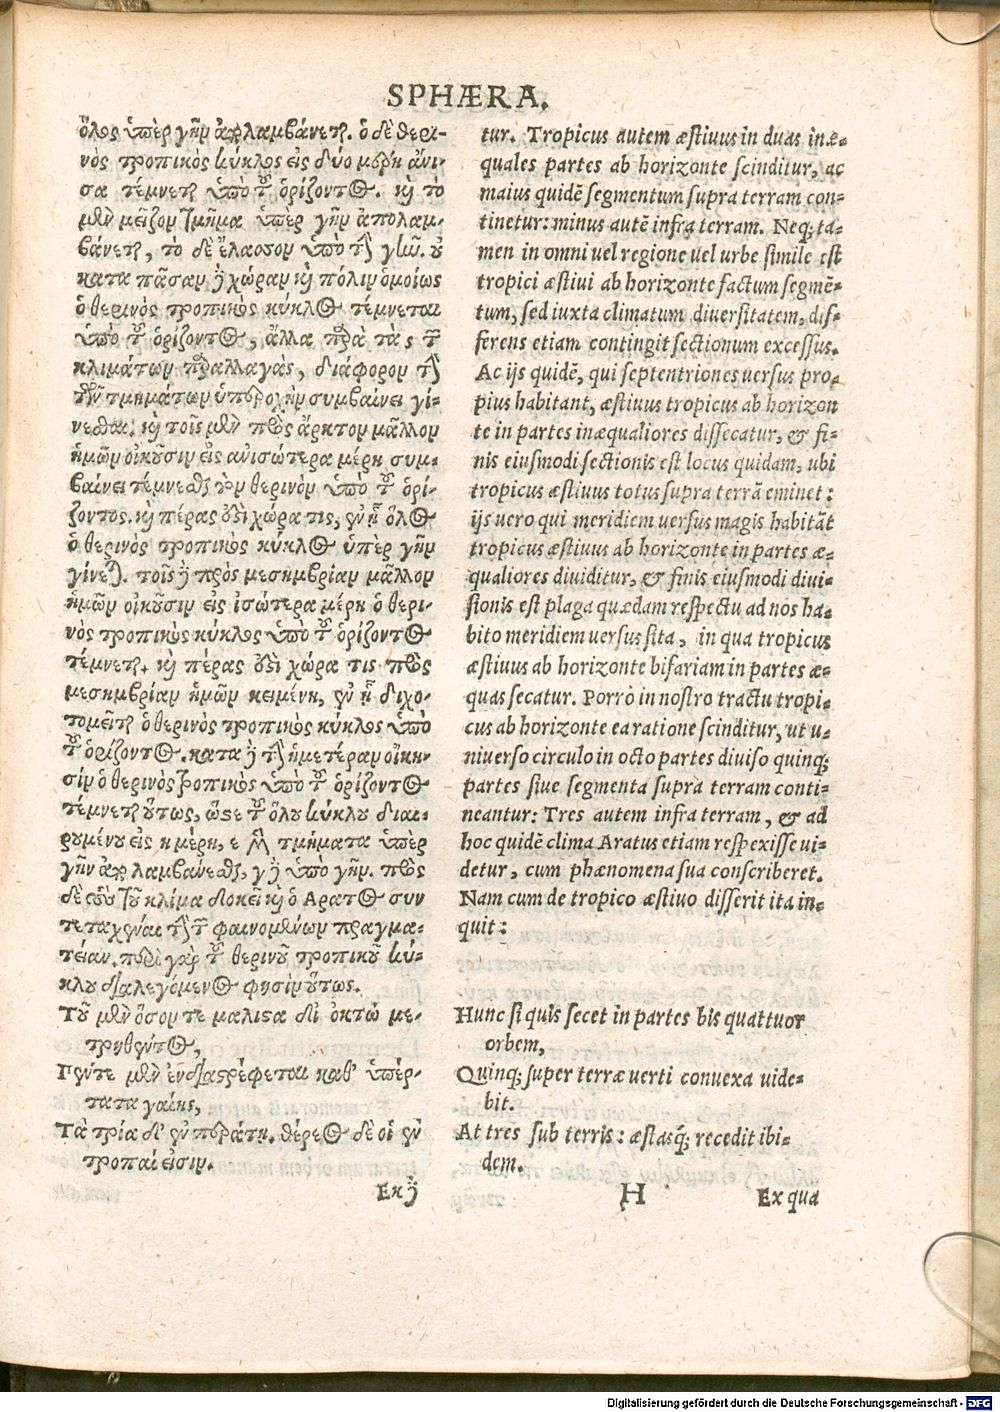 SPHÆRA.
ὅλος ὑπὲρ γῆν ἀπολαμβάνεται. ὁ δὲ θερι-
νὸς τροπικὸς κύκλος εἰς δύο μέρη ἄνι-
σα τέμνεται ὑπὸ τοῦ ὁρίζοντος. καὶ τὸ
μὲν μεῖζον τμῆμα ὑπὲρ γῆν ἀπολαμ-
βάνεται, τὸ δὲ ἔλασσον ὑπὸ τὴν γῆν. οὐ
κατὰ πᾶσαν δὲ χώραν καὶ πόλιν ὁμοίως
ὁ θερινὸς τροπικὸς κύκλος τέμνεται
ὑπὸ τοῦ ὁρίζοντος, ἀλλὰ παρὰ τὰς τῶν
κλιμάτων παραλλαγὰς, διάφορον τὴν
τῶν τμημάτων ὑπεροχὴν συμβαίνει γί-
νεσθαι. καὶ τοῖς μὲν πρὸς ἄρκτον μᾶλλον
ἡμῶν οἰκοῦσιν εἰς ἀνισώτερα μέρη συμ-
βαίνει τέμνεσθαι τὸν θερινὸν ὑπὸ τοῦ ὁρί-
ζοντος. καὶ πέρας ἐστὶ χώρα τις, ἐν ᾗ ὅλος
ὁ θερινὸς τροπικὸς κύκλος ὑπὲρ γῆν
γίνεται. τοῖς δὲ πρὸς μεσημβρίαν μᾶλλον
ἡμῶν οἰκοῦσιν εἰς ἰσώτερα μέρη ὁ θερι-
νὸς τροπικὸς κύκλος ὑπὸ τοῦ ὁρίζοντος
τέμνεται. καὶ πέρας ἐστὶ χώρα τις πρὸς
μεσημβρίαν ἡμῶν κειμένη, ἐν ᾗ διχο-
τομεῖται ὁ θερινὸς τροπικὸς κύκλος ὑπὸ
τοῦ ὁρίζοντος. κατὰ δὲ τὴν ἡμετέραν οἴκη-
σιν ὁ θερινὸς τροπικὸς ὑπὸ τοῦ ὁρίζοντος
τέμνεται οὕτως, ὥστε τοῦ ὅλου κύκλου διαι-
ρουμένου εἰς η μέρη, ε μὲν τμήματα ὑπὲρ
γῆν ἀπολαμβάνεσθαι, γ δὲ ὑπὸ γῆν. πρὸς
δὲ τοῦτο κλίμα δοκεῖ καὶ ὁ Αρατος συν
τεταχέναι τὴν τῶν φαινομένων πραγμα-
τείαν. περὶ γὰρ τοῦ θερινοῦ τροπικοῦ κύ-
κλου διαλεγόμενος φησὶν οὕτως.
Τοῦ μὲν ὅσον τε μάλιστα δι' ὀκτὼ με-
τρηθέντος,
Πέντε μὲν ἔνδια στρέφεται καθ' ὑπέρ-
τατα γαίης,
Τὰ τρία δ' ἐν περάτῃ. θέρεος δέ οἱ ἐν
τροπαί εἰσιν.
Εκ δὲ
tur. Tropicus autem æstiuus in duas inæ-
quales partes ab horizonte scinditur, ac
maius quidē segmentum supra terram con-
tinetur: minus autē infra terram. Neq; ta-
men in omni uel regione uel urbe simile est
tropici æstiui ab horizonte factum segmē-
tum, sed iuxta climatum diuersitatem, dif-
ferens etiam contingit sectionum excessus.
Ac ijs quidē, qui septentriones uersus pro-
pius habitant, æstiuus tropicus ab horizon
te in partes inæqualiores dissecatur, & fi-
nis eiusmodi sectionis est locus quidam, ubi
tropicus æstiuus totus supra terrā eminet:
ijs uero qui meridiem uersus magis habitāt
tropicus æstiuus ab horizonte in partes æ-
qualiores diuiditur, & finis eiusmodi diui-
sionis est plaga quædam respectu ad nos ha-
bito meridiem uersus sita, in qua tropicus
æstiuus ab horizonte bifariam in partes æ-
quas secatur. Porrò in nostro tractu tropi-
cus ab horizonte ea ratione scinditur, ut u-
niuerso circulo in octo partes diuiso quinq;
partes siue segmenta supra terram conti-
neantur: Tres autem infra terram, & ad
hoc quidē clima Aratus etiam respexisse ui-
detur, cum phænomena sua conscriberet.
Nam cum de tropico æstiuo disserit ita in-
quit:
Hunc si quis secet in partes bis quattuor
orbem,
Quinq; super terræ uerti conuexa uide-
bit.
At tres sub terris: æstasq; recedit ibi-
dem.
H
Ex qua
Digitalisierung gefördert durch die Deutsche Forschungsgemeinschaft - DFG